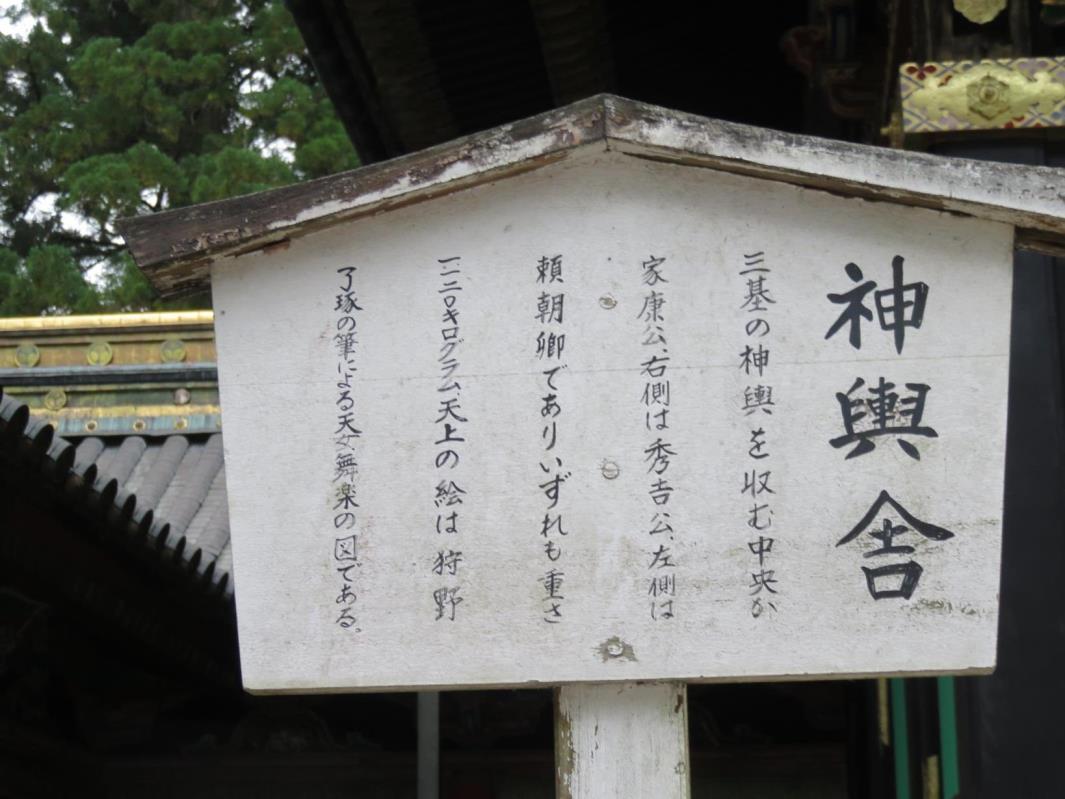 神輿舎
三基の神輿を収む中央が
家康公、右側は秀吉公、左側は
頼朝卿でありいずれも重さ
一一二〇キログラム、天上の絵は狩野
了琢の筆による天女舞楽の図である。